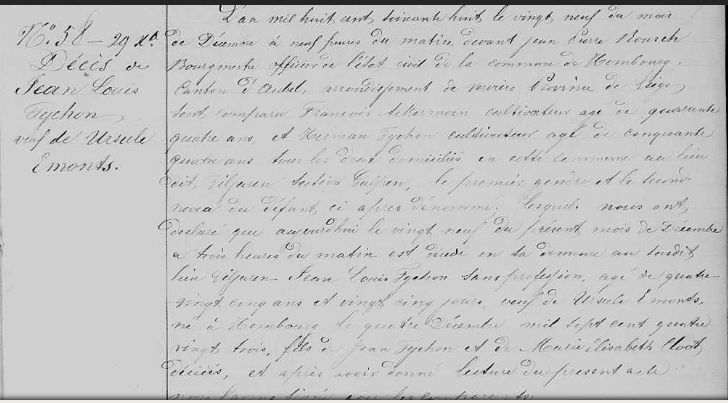 N° 58 – 29 Xbr
Décès de
Jean Louis
Tychon
veuf de Ursule
Emonts.
L'an mil huit cent soixante huit le vingt neuf du mois
de Décembre à neuf heures du matin devant jean Pierre
Bourgmestre officier de l'état civil de la commune de Hombourg,
Canton d'Aubel, arrondissement de verviers Province de Liège
sont comparu François Ackermain cultivateur agé de quarante
quatre ans, et Herman Tychon cultivateur agé de cinquante
quatre ans tous les deux domiciliés en cette commune au lieu
dit, section le premier gendre et le second
neveu du défunt, ci après dénommé. Lesquels nous ont
déclaré que aujourd'hui le vingt neuf du présent mois de Décembre
a trois heures du matin est décédé en sa demeure au susdit
lieu Jean Louis Tychon sans profession, agé de quatre-
vingt cinq ans et vingt cinq jours, veuf de Ursule Emonts,
né à Hombourg le quatre Décembre mil sept cent quatre
vingt trois, fils de Jean Tychon et de Marie Elisabeth Cloot,
décédés, et après avoir donné lecture du present acte